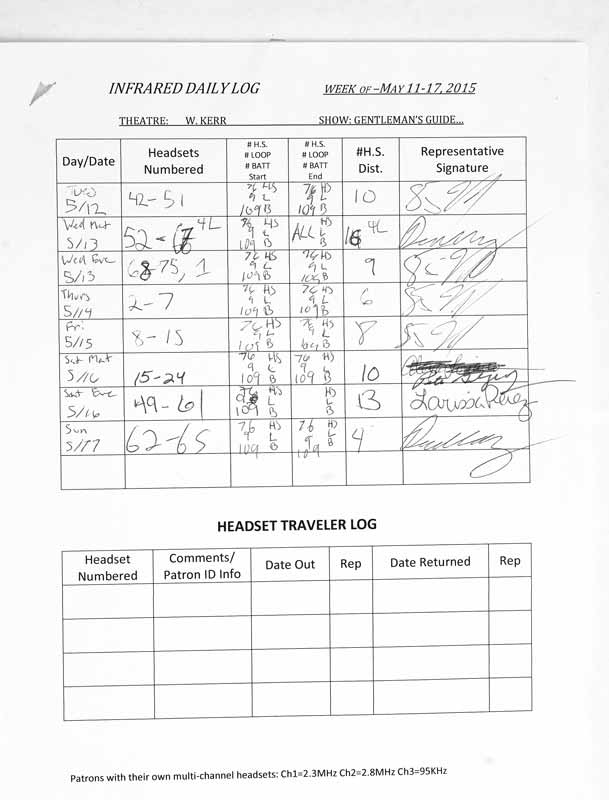 INFRARED DAILY LOG WEEK OF –MAY 11-17, 2015
THEATRE: W. KERR SHOW: GENTLEMAN'S GUIDE...
Day/Date Headsets Numbered # H.S. # LOOP # BATT Start # H.S. # LOOP # BATT End #H.S. Dist. Representative Signature
Tues 5/12 42-51 76 HS 9 L 109 B 76 HS 9 L 109 B 10
Wed Mat 5/13 52- 4L 76 HS 9 L 109 B ALL HS L B 4L
Wed Eve 5/13 68-75, 1 76 HS 9 L 109 B 76 HS 9 L 109 B 9
Thurs 5/14 2-7 76 HS 9 L 109 B 76 HS 9 L 109 B 6
Fri 5/15 8-15 76 HS 9 L 109 B 76 HS 9 L B 8
Sat Mat 5/16 15-24 76 HS 9 L 109 B 76 HS 9 L 109 B 10
Sat Eve 5/16 49-61 HS L 109 B HS L B 13 Larissa Perez
Sun 5/17 62-65 76 HS 9 L 109 B 76 HS 9 L 109 B 4
HEADSET TRAVELER LOG
Headset Numbered Comments/ Patron ID Info Date Out Rep Date Returned Rep
Patrons with their own multi-channel headsets: Ch1=2.3MHz Ch2=2.8MHz Ch3=95KHz